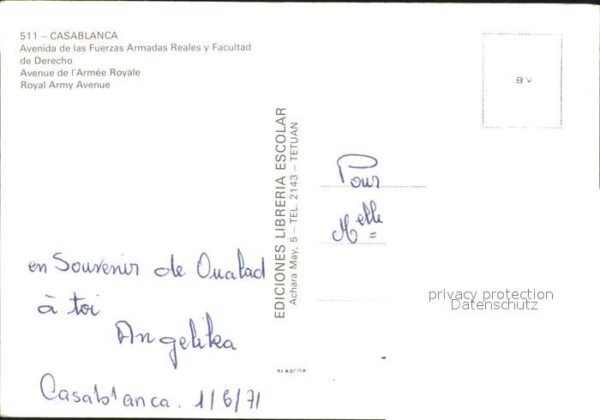 511 – CASABLANCA
Avenida de las Fuerzas Armadas Reales y Facultad
de Derecho
Avenue de l'Armée Royale
Royal Army Avenue
en Souvenir de Oualad
à toi
Angelika
Casablanca. 1/6/71
EDICIONES LIBRERIA ESCOLAR
Achara May, 5 – TEL. 2143 – TETUAN
BV
Pour
Melle
privacy protection
Datenschutz